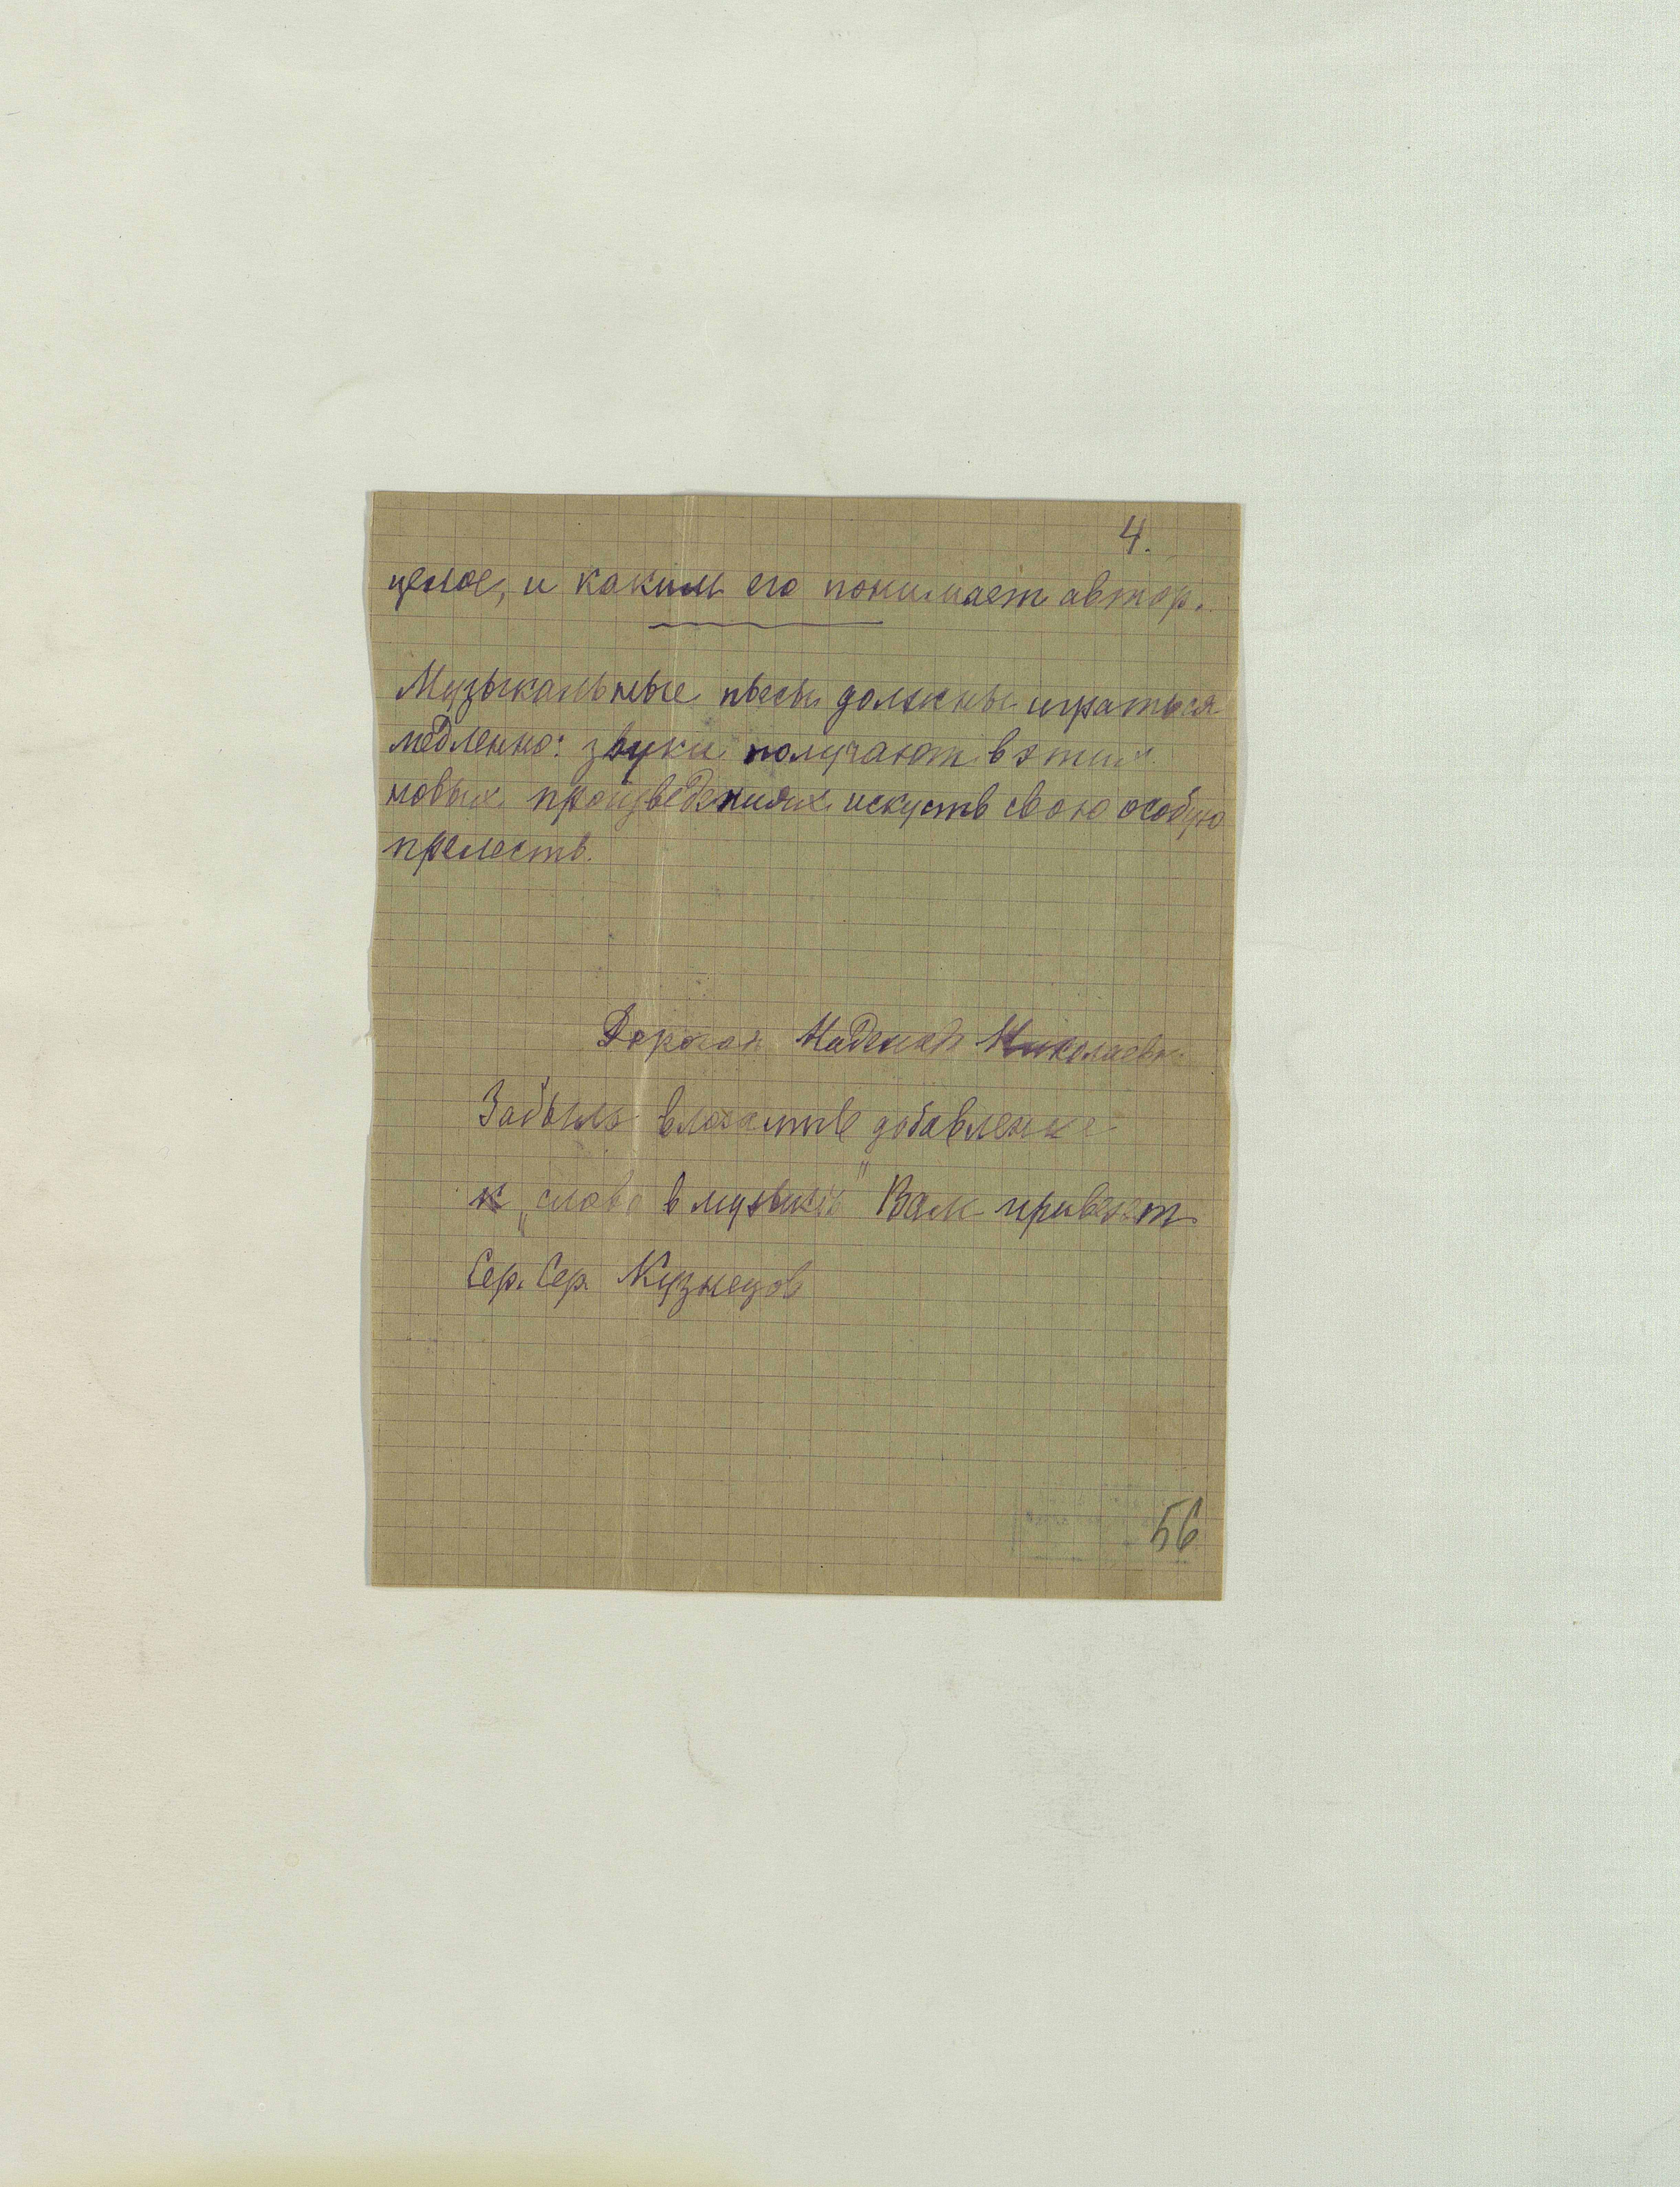 4.
целое, и каким его понимает автор.
Музыкальные пьесы должны играться
медленно: звуки получают в этих
новых произведениях искуств свою особую
прелесть.
Дорогая Надежда Николаевна
Забыль вложить добавление
к „слово в музыке" Вам привет
Сер. Сер. Кузнецов
56